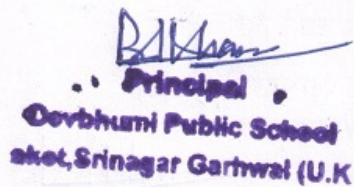 Principal
Devbhumi Public School
aket,Srinagar Garhwal (U.K